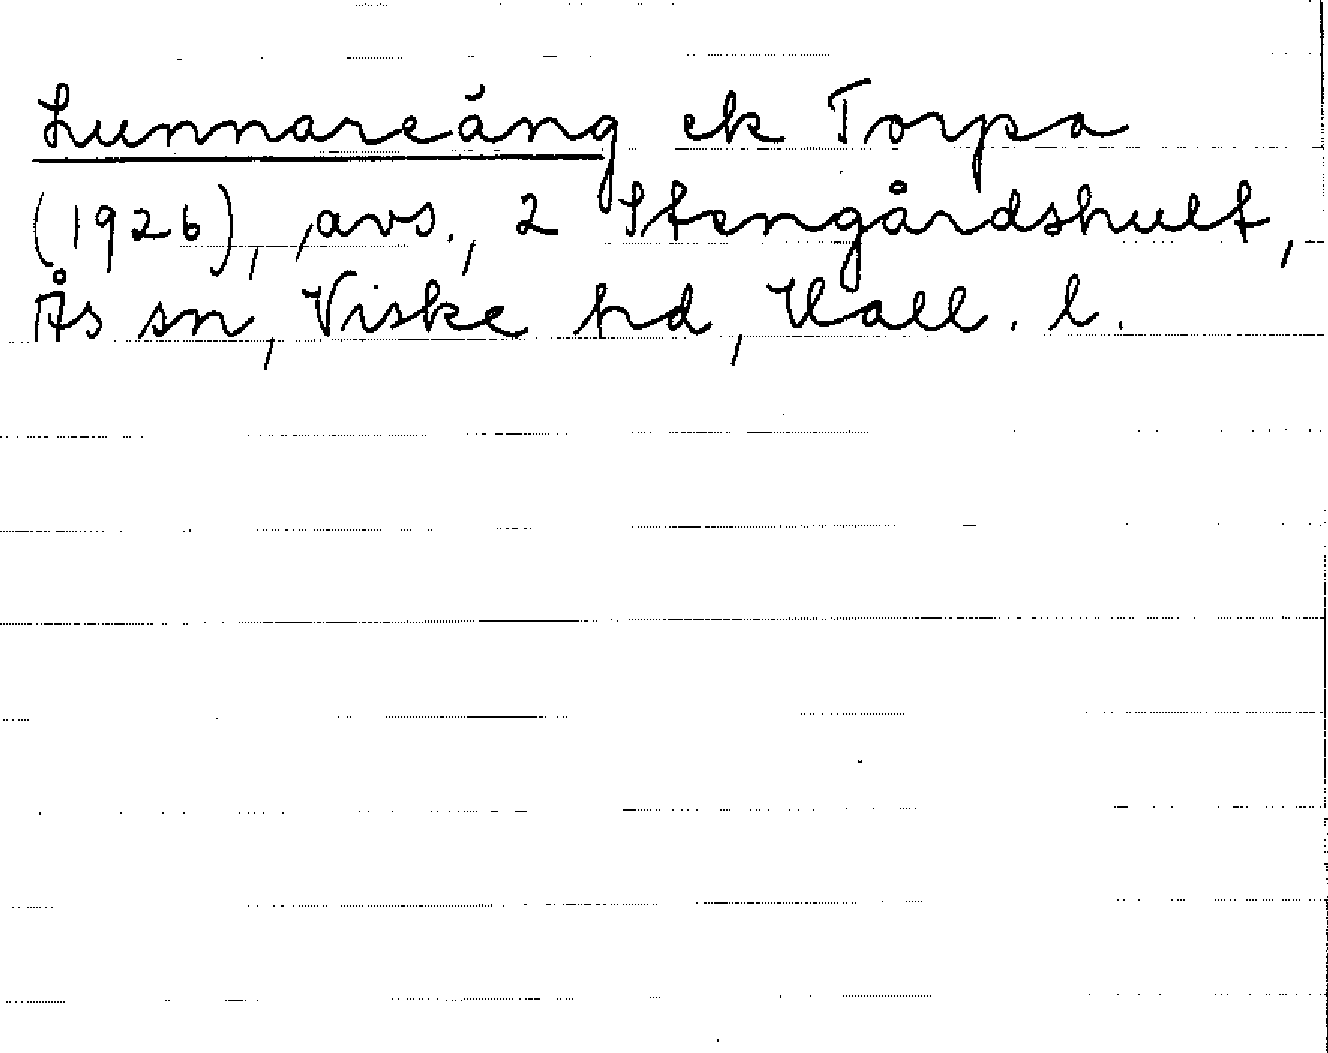 Lunnareäng ek Torpa
(1926), avs., 2 Stengårdshult,
Ås sn, Viske hd, Hall. l.